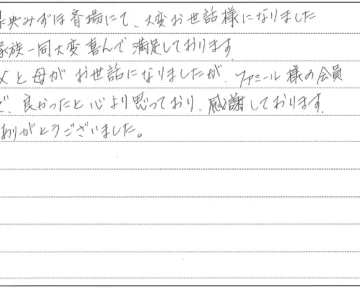 央みずほ斎場にて、大変お世話様になりました
家族一同大変喜んで満足しております
父と母がお世話になりましたが、ファミール様の会員
で、良かったと心より思っており、感謝しております。
ありがとうございました。